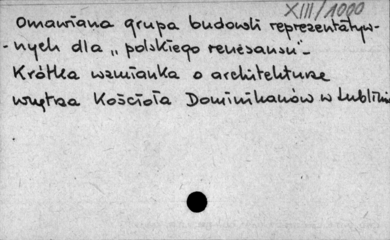 XIII/1000
Omawiana grupa budowli reprezentatyw-
-nych dla „polskiego renesansu"-
Krótka wzmianka o architekturze
wnętrza Kościoła Dominikanów w Lublinie